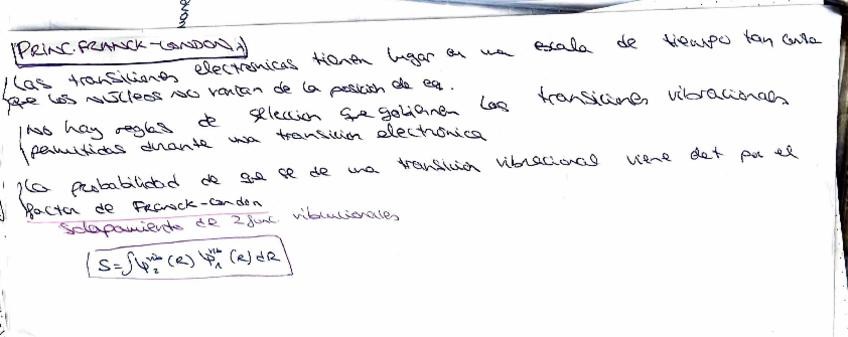 PRINC.FRANCK-CONDON
Las transiciones electronicas tienen lugar en una escala de tiempo tan corta
que los núcleos no varian de la posición de eq.
No hay reglas de selección que gobiernen las transiciones vibracionales
permitidas durante una transición electrónica
La probabilidad de que se de una transición vibracional viene det por el
factor de Franck-Condon
Solapamiento de 2 func vibracionales
S=∫Ψ₂ᵛⁱᵇ(R) Ψ₁ᵛⁱᵇ(R) dR